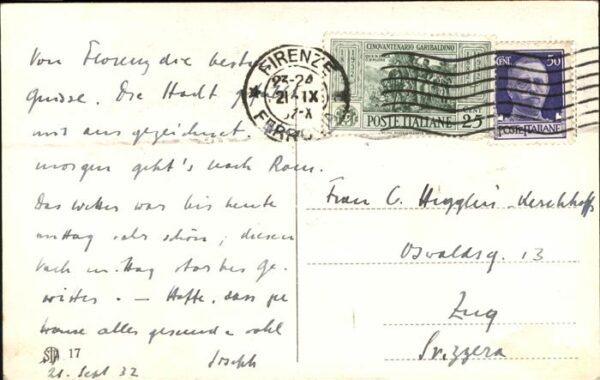 Von Florenz die besten
Grüsse. Die Stadt
mir ausgezeichnet.
morgen geht's nach Rom.
Das Wetter war bis heute
mittag sehr schön; diesen
Nachmittag starkes Ge-
witter. — Hoffe, dass
zu hause alles gesund & wohl
Joseph
21. Sept 32
17
FIRENZE
23-24
21·IX
32-X
FERROVIA
CINQUANTENARIO GARIBALDINO
POSTE ITALIANE 25
CENT. 50
POSTE ITALIANE
Frau C. Hugglin-Kerckhoffs
Oswaldsg. 13
Zug
Svizzera